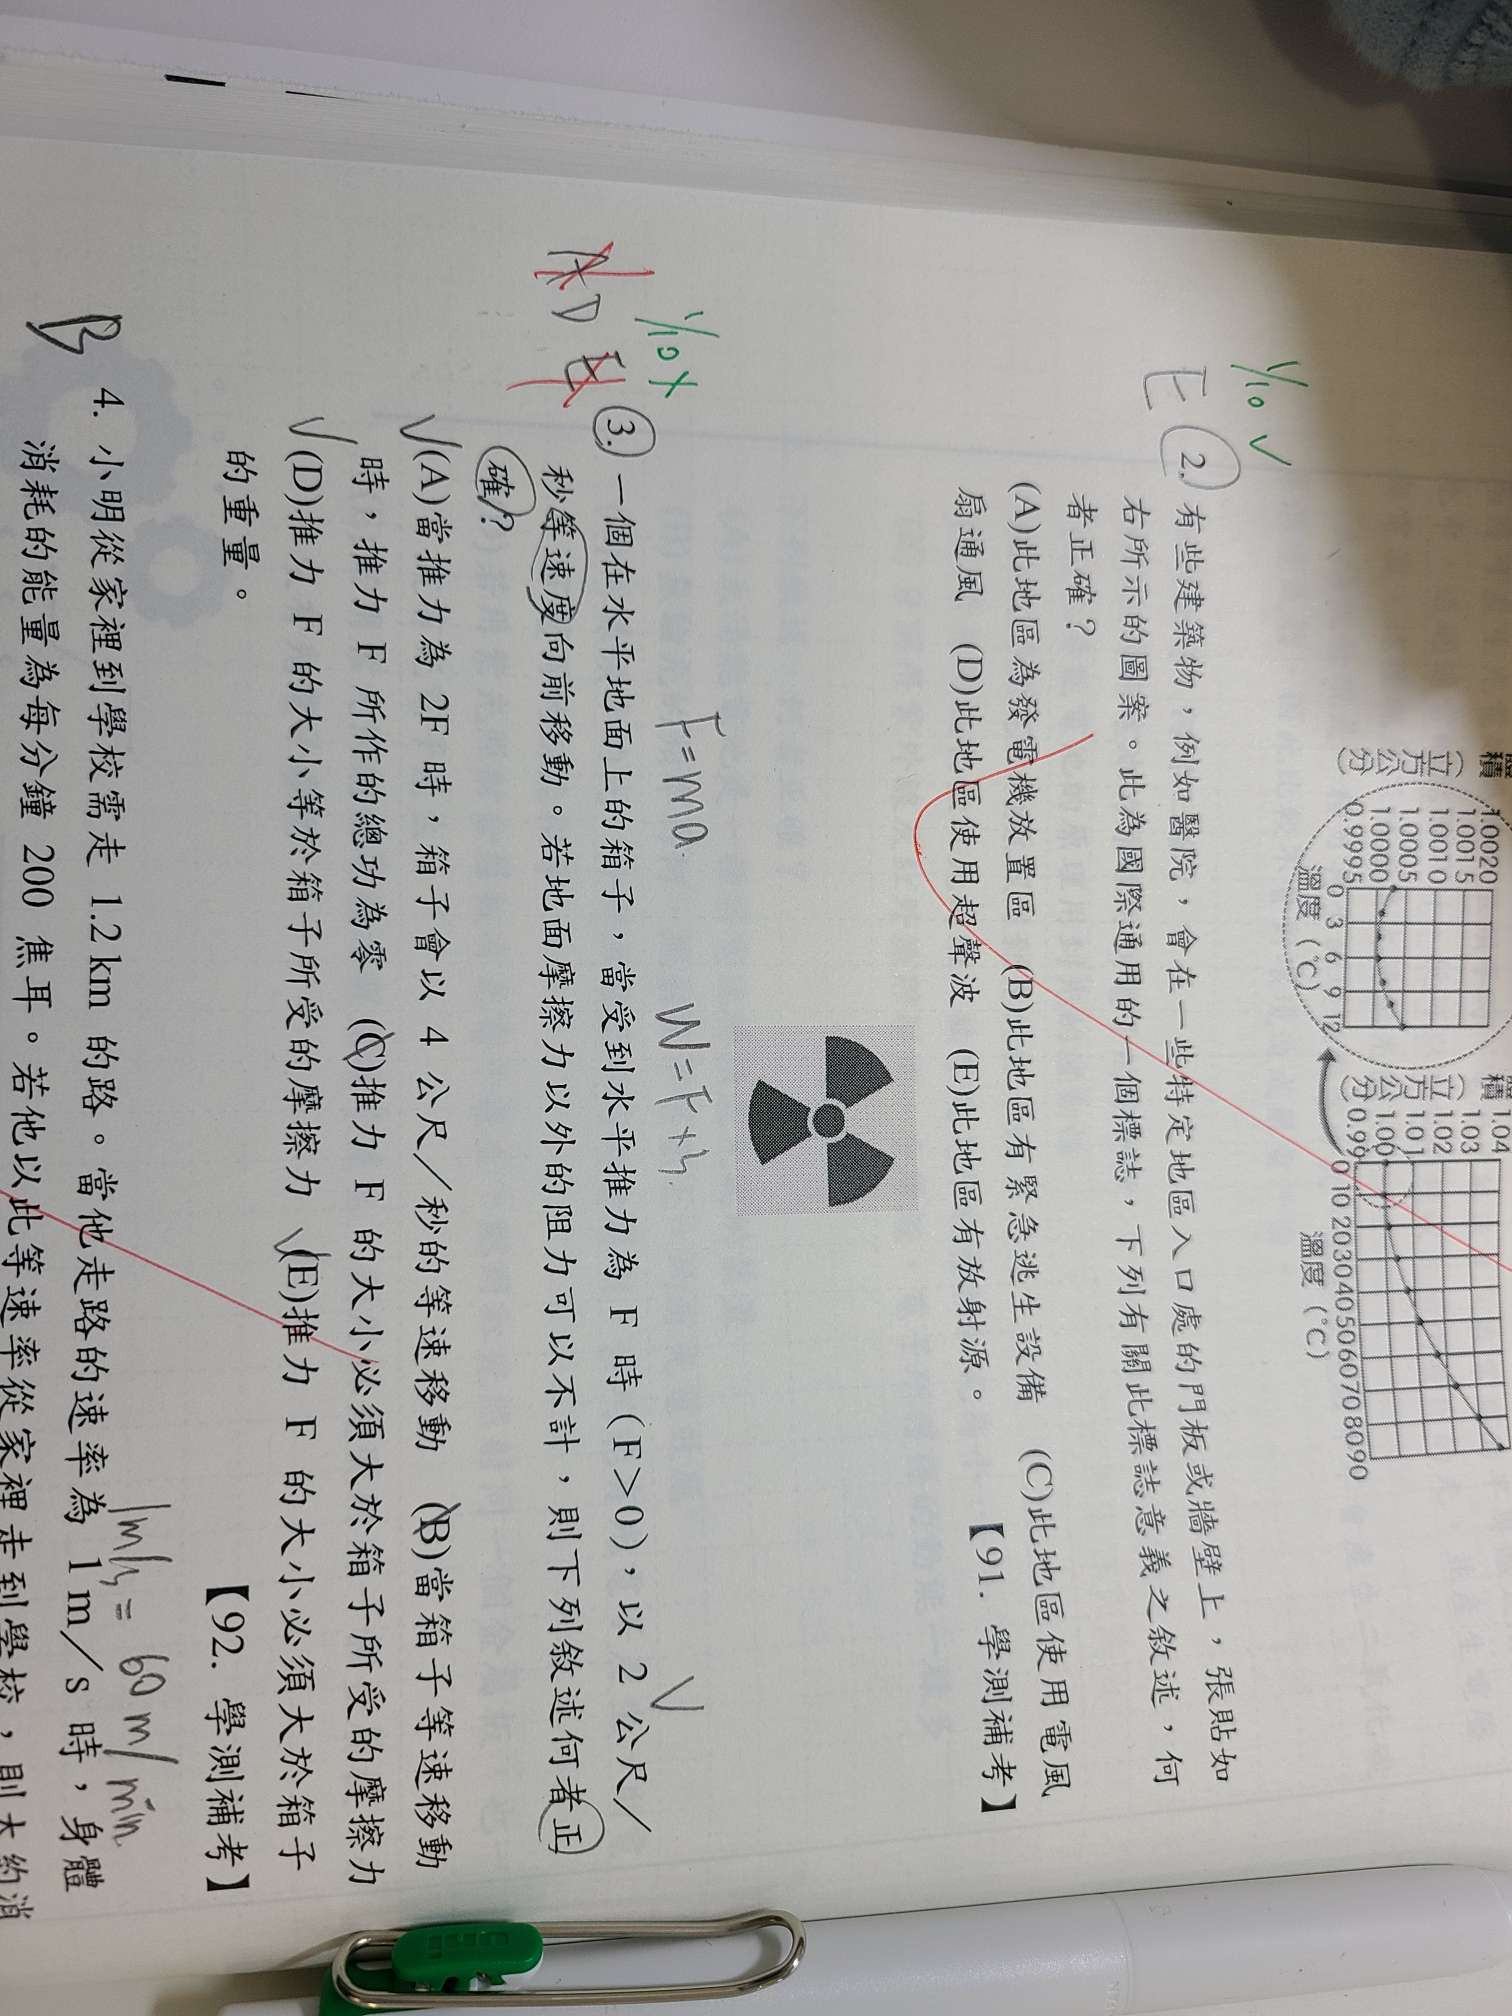 積(立方公分)
1.0020
1.0015
1.0010
1.0005
1.0000
0.9995
0 3 6 9 12
溫度(℃)
積(立方公分)
1.04
1.03
1.02
1.01
1.00
0.99
0 10 20 30 40 50 60 70 80 90
溫度(℃)
1/10 ✓
E
2. 有些建築物,例如醫院,會在一些特定地區入口處的門板或牆壁上,張貼如
右所示的圖案。此為國際通用的一個標誌,下列有關此標誌意義之敘述,何
者正確?
(A)此地區為發電機放置區 (B)此地區有緊急逃生設備 (C)此地區使用電風
扇通風 (D)此地區使用超聲波 (E)此地區有放射源。 【91. 學測補考】
F=ma
1/10 X
A D E
3. 一個在水平地面上的箱子,當受到水平推力為 F 時(F>0),以 2 公尺/
秒等速度向前移動。若地面摩擦力以外的阻力可以不計,則下列敘述何者正
確?
(A)當推力為 2F 時,箱子會以 4 公尺/秒的等速移動 (B)當箱子等速移動
時,推力 F 所作的總功為零 (C)推力 F 的大小必須大於箱子所受的摩擦力
(D)推力 F 的大小等於箱子所受的摩擦力 (E)推力 F 的大小必須大於箱子
的重量。 【92. 學測補考】
1m/s = 60 m/min
B
4. 小明從家裡到學校需走 1.2 km 的路。當他走路的速率為 1 m/s 時,身體
消耗的能量為每分鐘 200 焦耳。若他以此等速率從家裡走到學校,則大約消